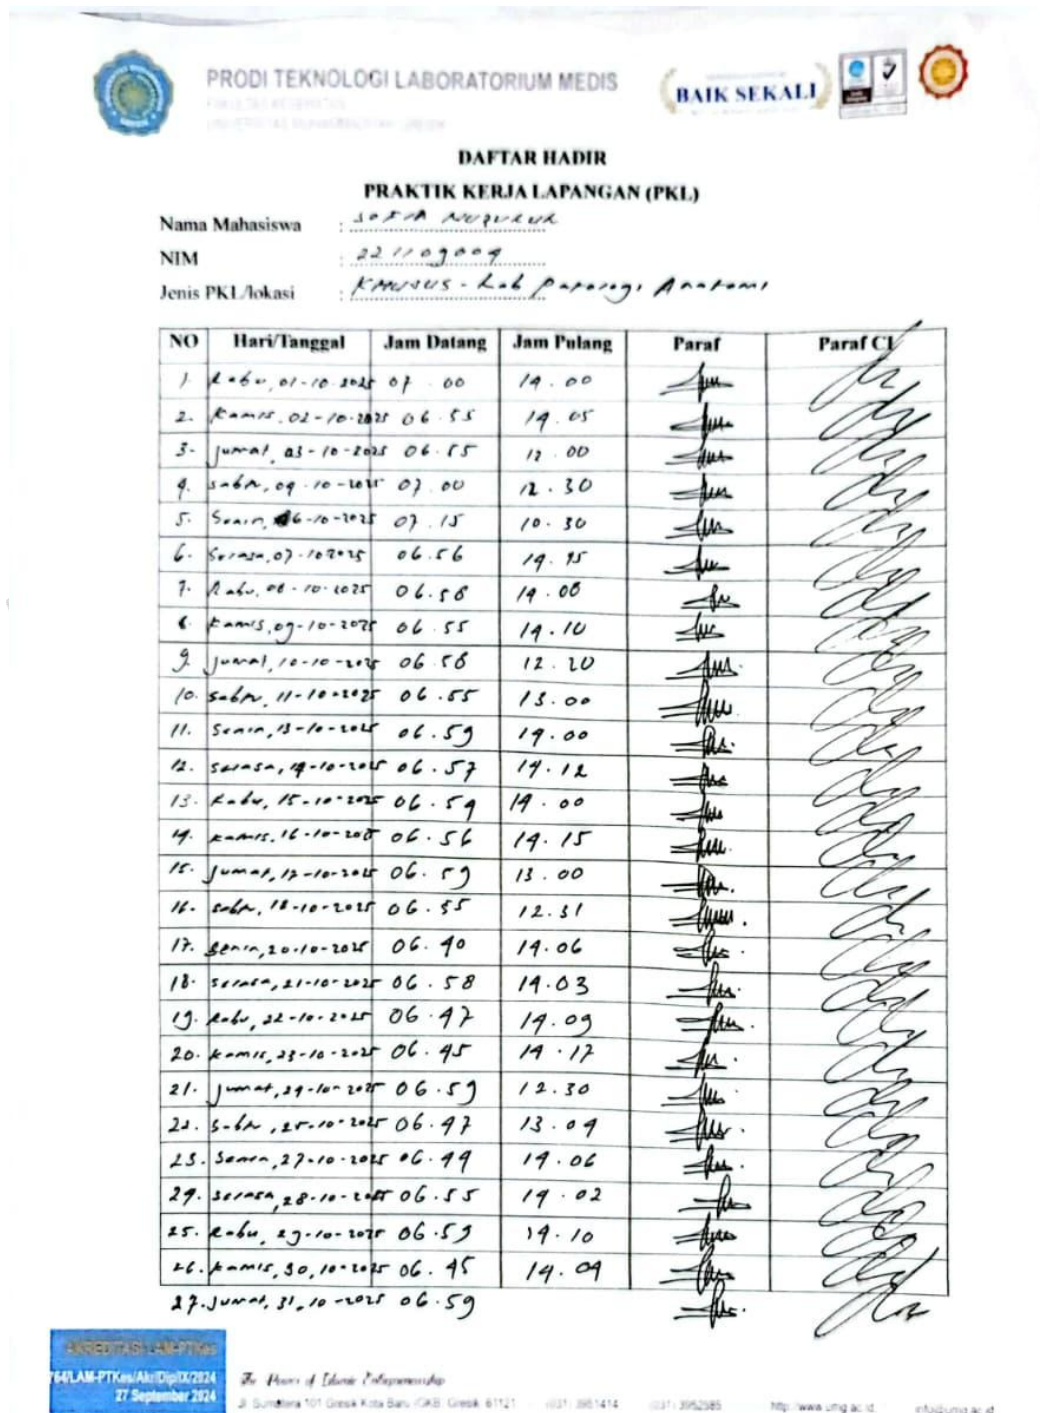 PRODI TEKNOLOGI LABORATORIUM MEDIS
FAKULTAS KESEHATAN
BAIK SEKALI
DAFTAR HADIR
PRAKTIK KERJA LAPANGAN (PKL)
Nama Mahasiswa :
NIM : 221109009
Jenis PKL/lokasi : Khusus - Lab Patologi Anatomi
NO Hari/Tanggal Jam Datang Jam Pulang Paraf Paraf CI
1. Rabu, 01-10-2025 07.00 14.00
2. Kamis, 02-10-2025 06.55 14.05
3. Jumat, 03-10-2025 06.55 12.00
4. Sabtu, 04-10-2025 07.00 12.30
5. Senin, 06-10-2025 07.15 10.30
6. Selasa, 07-10 2025 06.56 14.45
7. Rabu, 08-10-2025 06.58 14.08
8. Kamis, 09-10-2025 06.55 14.10
9. Jumat, 10-10-2025 06.58 12.20
10. Sabtu, 11-10-2025 06.55 13.00
11. Senin, 13-10-2025 06.59 14.00
12. Selasa, 14-10-2025 06.57 14.12
13. Rabu, 15-10-2025 06.59 14.00
14. Kamis, 16-10-2025 06.56 14.15
15. Jumat, 17-10-2025 06.59 13.00
16. Sabtu, 18-10-2025 06.55 12.31
17. Senin, 20-10-2025 06.40 14.06
18. Selasa, 21-10-2025 06.58 14.03
19. Rabu, 22-10-2025 06.47 14.09
20. Kamis, 23-10-2025 06.45 14.17
21. Jumat, 24-10-2025 06.59 12.30
22. Sabtu, 25-10-2025 06.47 13.04
23. Senin, 27-10-2025 06.44 14.06
24. Selasa, 28-10-2025 06.55 14.02
25. Rabu, 29-10-2025 06.59 14.10
26. Kamis, 30, 10-2025 06.45 14.04
27. Jumat, 31, 10-2025 06.59
AKREDITASI LAM-PTKes
764/LAM-PTKes/Akr/Dip/IX/2024
27 September 2024
The Power of Islamic Entrepreneurship
Jl. Sumatera 101 Gresik Kota Baru (GKB) Gresik 61121 (031) 3951414 (031) 3952585 http://www.umg.ac.id info@umg.ac.id